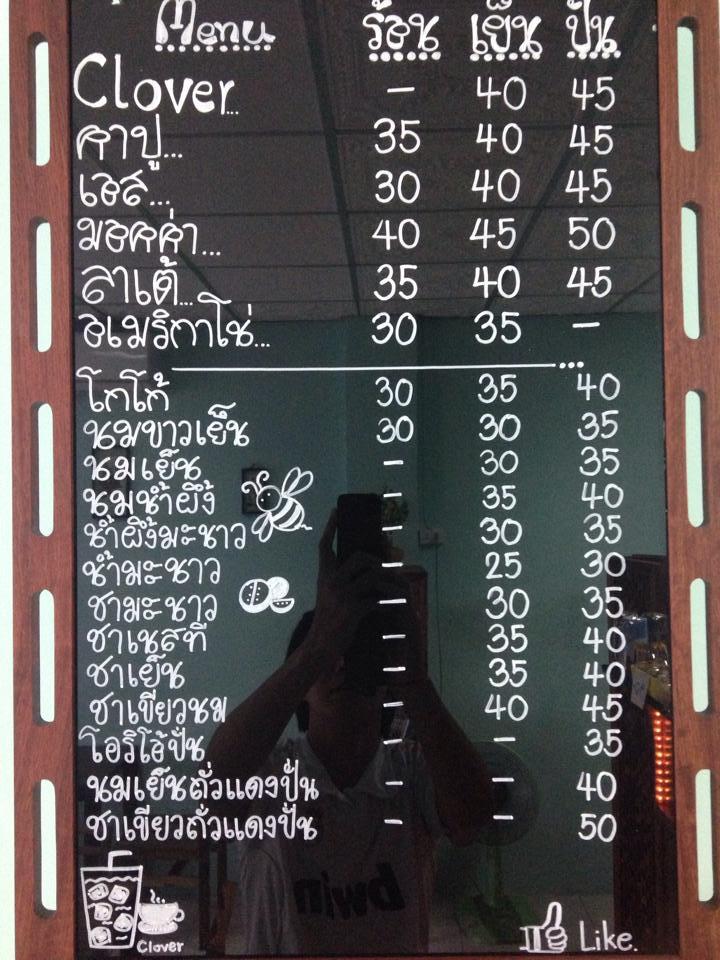 Menu ร้อน เย็น ปั่น
Clover... - 40 45
คาปู... 35 40 45
เอส... 30 40 45
มอคค่า... 40 45 50
ลาเต้... 35 40 45
อเมริกาโน่... 30 35 -
โกโก้ 30 35 40
นมขาวเย็น 30 30 35
นมเย็น - 30 35
นมน้ำผึ้ง - 35 40
น้ำผึ้งมะนาว - 30 35
น้ำมะนาว - 25 30
ชามะนาว - 30 35
ชาเนสที - 35 40
ชาเย็น - 35 40
ชาเขียวนม - 40 45
โอริโอ้ปั่น - 35
นมเย็นถั่วแดงปั่น - - 40
ชาเขียวถั่วแดงปั่น - - 50
Clover
Like.
bwin